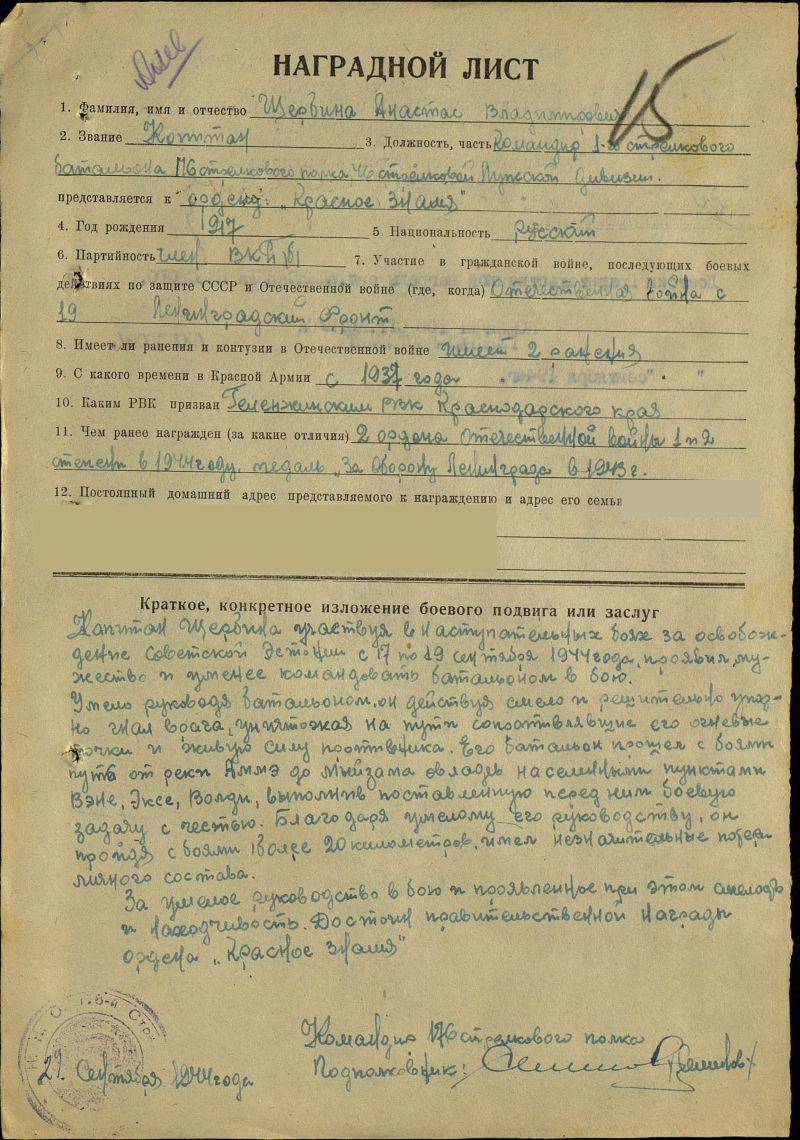 15
НАГРАДНОЙ ЛИСТ
1. Фамилия, имя и отчество Щербина Анастас Владимирович
2. Звание Капитан 3. Должность, часть Командир 1-го стрелкового
батальона 176 стрелкового полка 46 стрелковой Лужской дивизии.
представляется к ордену: „Красное Знамя"
4. Год рождения 1917 5. Национальность русский
6. Партийность член ВКП(б) 7. Участие в гражданской войне, последующих боевых
действиях по защите СССР и Отечественной войне (где, когда) Отечественная война с
19 Ленинградский Фронт
8. Имеет ли ранения и контузии в Отечественной войне имеет 2 ранения
9. С какого времени в Красной Армии с 1937 года
10. Каким РВК призван Геленжинским РВК Краснодарского края
11. Чем ранее награжден (за какие отличия) 2 ордена Отечественной войны 1 и 2
степени в 1944 году, медаль „За Оборону Ленинграда в 1943 г.
12. Постоянный домашний адрес представляемого к награждению и адрес его семьи
Краткое, конкретное изложение боевого подвига или заслуг
Капитан Щербина участвуя в наступательных боях за освобож-
дение Советской Эстонии с 17 по 19 сентября 1944 года, проявил му-
жество и умение командовать батальоном в бою.
Умело руководя батальоном, он действуя смело и решительно упор-
но гнал врага, уничтожая на пути сопротивлявшие его огневые
точки и живую силу противника. Его батальон прошел с боями
путь от реки Аммэ до Мыйзама овладев населенными пунктами
Вэне, Эксе, Волди, выполнив поставленную перед ним боевую
задачу с честью. Благодаря умелому его руководству, он
пройдя с боями более 20 километров, имел незначительные потери
личного состава.
За умелое руководство в бою и проявленное при этом смелость
и находчивость. Достоин правительственной награды
ордена „Красное Знамя"
Командир 176 стрелкового полка
Подполковник:
27 Сентября 1944 года